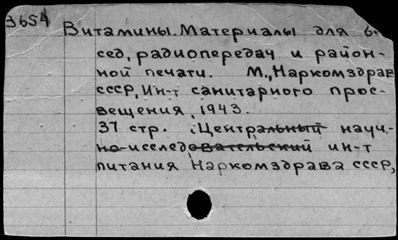 3654
Витамины. Материалы для бе-
сед, радиопередач и район-
ной печати. М., Наркомздрав
СССР, Ин-т санитарного прос-
вещения, 1943.
37 стр. Центральный науч.
но-исследовательский ин-т
питания Наркомздрава СССР,